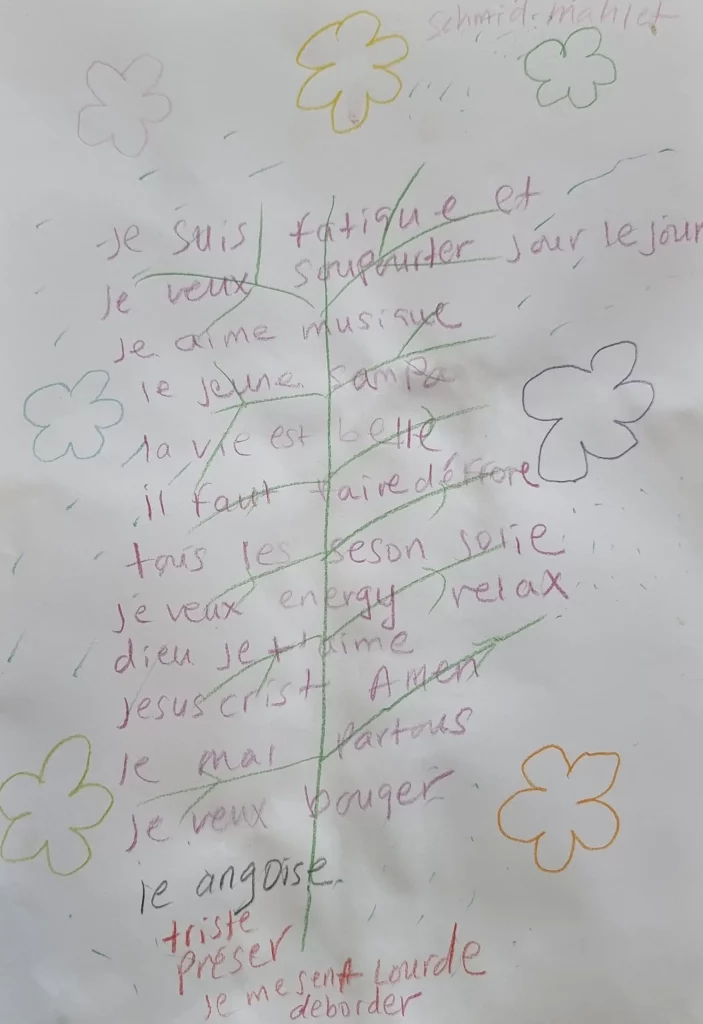 schmid-mahlet
je suis fatigue et
je veux soupourter jour le jour
je aime musique
le jeune sampa
la vie est belle
il faut faire d'éffore
tous les beson sorie
je veux energy relax
dieu je t'aime
jesus crist Amen
je mal partous
je veux bouger
je angoise
triste
préser
je me sent lourde
deborder